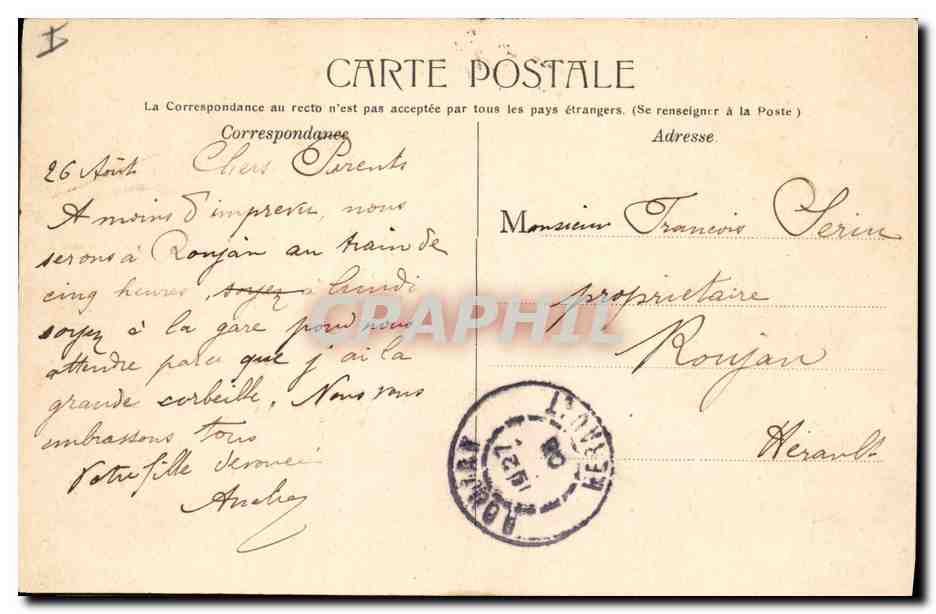 CARTE POSTALE
La Correspondance au recto n'est pas acceptée par tous les pays étrangers. (Se renseigner à la Poste)
Correspondance
26 Août Chers Parents
A moins d'imprevu, nous
serons à Roujan au train de
cinq heures, soyez à lundi
soyez à la gare pour nous
attendre parce que j'ai la
grande corbeille. Nous vous
embrassons tous
Votre fille dévouée
Adresse.
Monsieur François Serin
propriétaire
Roujan
Hérault
ROUJAN
HERAULT
27
08
CRAPHIL